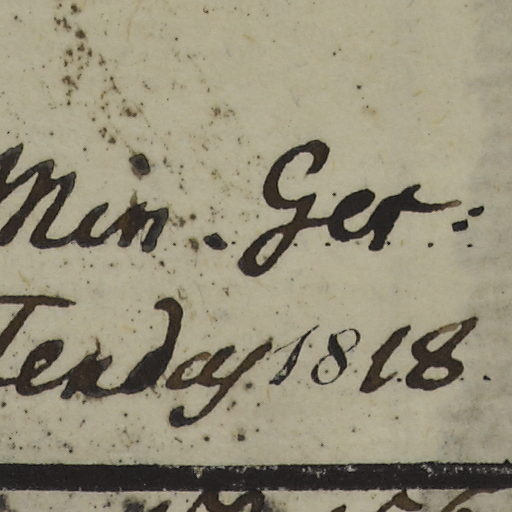 Min. Ger:
Tenday 1818.